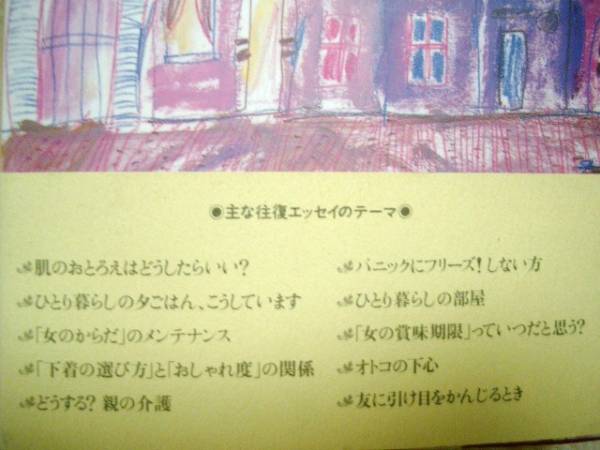 ◉主な往復エッセイのテーマ◉
肌のおとろえはどうしたらいい?
ひとり暮らしの夕ごはん、こうしています
「女のからだ」のメンテナンス
「下着の選び方」と「おしゃれ度」の関係
どうする? 親の介護
パニックにフリーズ! しない方
ひとり暮らしの部屋
「女の賞味期限」っていつだと思う?
オトコの下心
友に引け目をかんじるとき